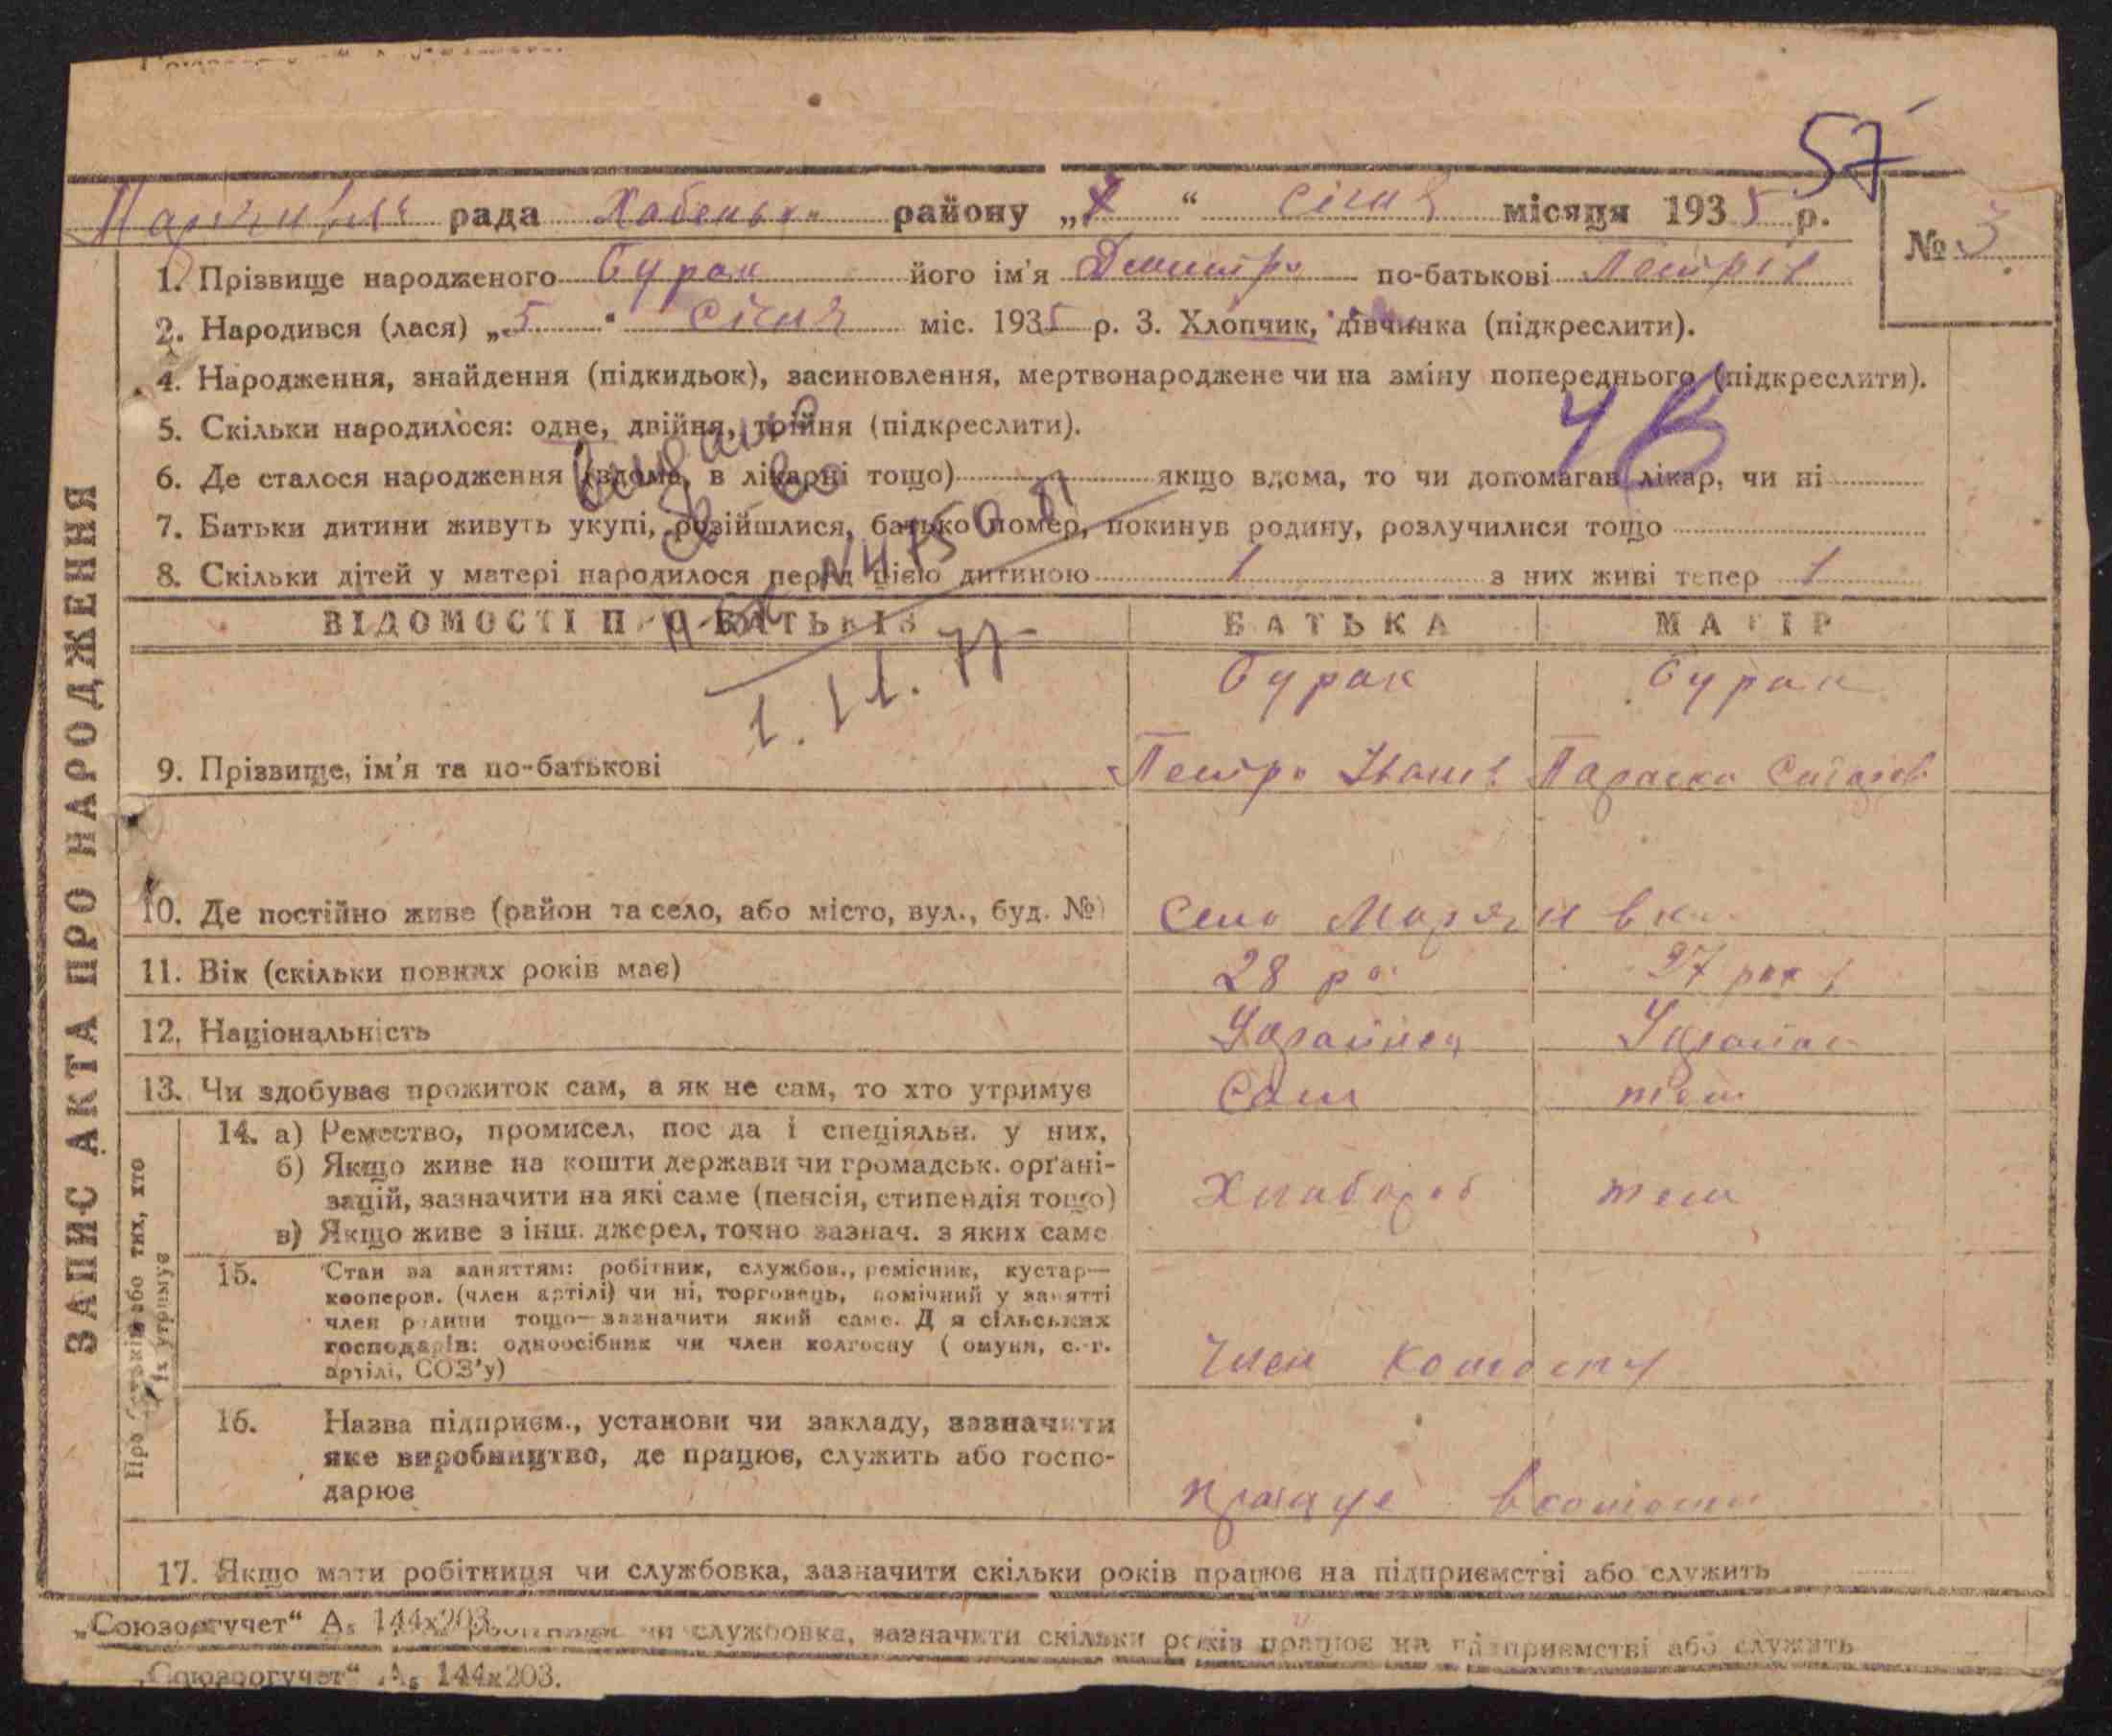 57
рада Хабеньк. району „ “ січня місяця 1935 р.
№ 3
1. Прізвище народженого Бурак його ім'я Дмитро по-батькові Петрів
2. Народився (лася) „5“ січня міс. 1935 р. 3. Хлопчик, дівчинка (підкреслити).
4. Народження, знайдення (підкидьок), засиновлення, мертвонароджене чи на зміну попереднього (підкреслити).
5. Скільки народилося: одне, двійня, трійня (підкреслити).
6. Де сталося народження (вдома, в лікарні тощо) якщо вдома, то чи допомагав лікар, чи ні
7. Батьки дитини живуть укупі, розійшлися, батько помер, покинув родину, розлучилися тощо
8. Скільки дітей у матері народилося перед цією дитиною 1 з них живі тепер 1
1.11.77
ВІДОМОСТІ ПРО БАТЬКІВ БАТЬКА МАТІР
Бурак Бурак
9. Прізвище, ім'я та по-батькові Петро Іванів Параска
10. Де постійно живе (район та село, або місто, вул., буд. №) Село Марянівка
11. Вік (скільки повних років має) 28 ро 27 рок
12. Національність Українец Україн
13. Чи здобуває прожиток сам, а як не сам, то хто утримує Сам теж
14. а) Ремество, промисел, посада і спеціяльн. у них,
б) Якщо живе на кошти держави чи громадськ. орґані-
зацій, зазначити на які саме (пенсія, стипендія тощо) Хлібороб теж
в) Якщо живе з інш. джерел, точно зазнач. з яких саме
15. Стан за заняттям: робітник, службов., ремісник, кустар—
кооперов. (член артілі) чи ні, торговець, помічний у занятті
член родини тощо—зазначити який саме. Для сільських
господарів: одноосібник чи член колгоспу (комуни, с.-г.
артілі, СОЗ'у) Член колгоспу
16. Назва підприєм., установи чи закладу, зазначити
яке виробництво, де працює, служить або госпо-
дарює працює в колгоспі
17. Якщо мати робітниця чи службовка, зазначити скільки років працює на підприємстві або служить
„Союзоргучет“ А₅ 144x203.
чи службовка, зазначити скільки років працює на підприємстві або служить
„Союзоргучет“ А₅ 144x203.
ЗАПИС АКТА ПРО НАРОДЖЕННЯ
Про батьків або тих, хто
їх утримує